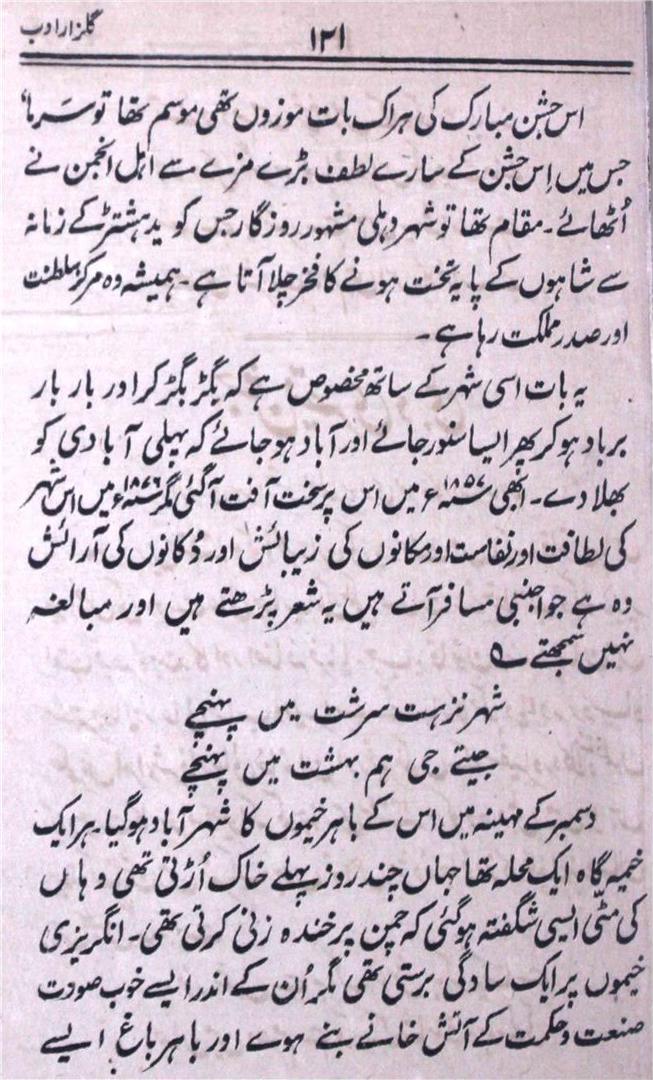 گلزار ادب
۱۲۱
اس جشن مبارک کی ہر اک بات موزوں تھی موسم تھا تو سَرما،
جس میں اِس جشن کے سارے لطف بڑے مزے سے اہل انجمن نے
اُٹھائے۔ مقام تھا تو شہر دہلی مشہور روزگار جس کو یدہشٹر کے زمانہ
سے شاہوں کے پایہ تخت ہونے کا فخر چلا آتا ہے۔ ہمیشہ وہ مرکز سلطنت
اور صدر مملکت رہا ہے۔
یہ بات اسی شہر کے ساتھ مخصوص ہے کہ بگڑ بگڑ کر اور بار بار
برباد ہو کر پھر ایسا سنور جائے اور آباد ہو جائے کہ پہلی آبادی کو
بھلا دے۔ ابھی ۱۸۵۷ء میں اس پر سخت آفت آ گئی مگر ۱۸۷۶ء میں اس شہر
کی لطافت اور نفاست اور مکانوں کی زیبائش اور دُکانوں کی آرائش
وہ ہے جو اجنبی مسافر آتے ہیں یہ شعر پڑھتے ہیں اور مبالغہ
نہیں سمجھتے ؎
شہر نزہت سرشت میں پہنچے
جیتے جی ہم بہشت میں پہنچے
دسمبر کے مہینہ میں اس کے باہر خیموں کا شہر آباد ہو گیا۔ ہر ایک
خیمہ گاہ ایک محلہ تھا جہاں چند روز پہلے خاک اُڑتی تھی وہاں
کی مٹی ایسی شگفتہ ہو گئی کہ چمن پر خندہ زنی کرتی تھی۔ انگریزی
خیموں پر ایک سادگی برستی تھی مگر اُن کے اندر ایسے خوب صورت
صنعت و حکمت کے آتش خانے بنے ہوے اور باہر باغ ایسے